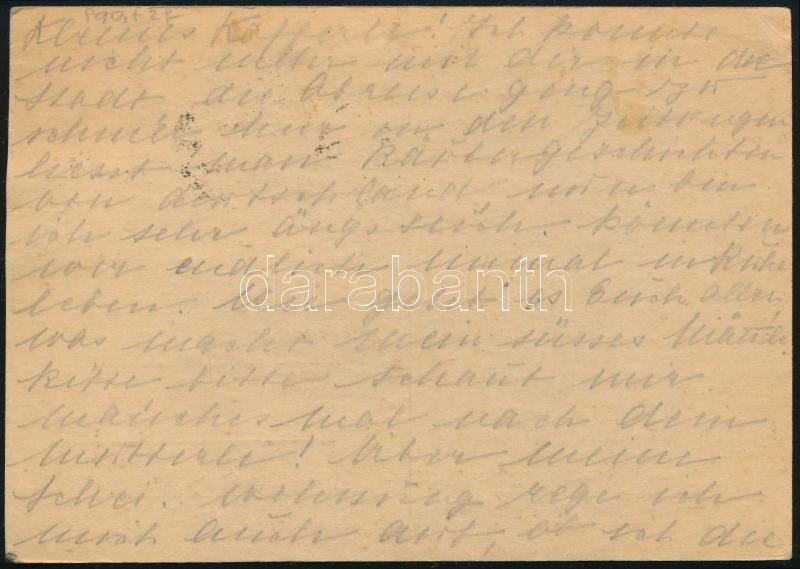 Kleines Kafferle! Ich konnte
nicht mehr mit dir in die
Stadt die Abreise ging zu
schnell hier in den Zeitungen
liesst man Räubergeschichten
von deutschland, nun bin
ich sehr ängstlich. könnten
wir endlich einmal in Ruhe
leben. Wie geht es Euch allen,
was macht mein süsses
bitte schaut mir
manchesmal nach dem
Mutterle! Über meine
wohnung rege ich
mich auch auf, ob ich die
darabanth